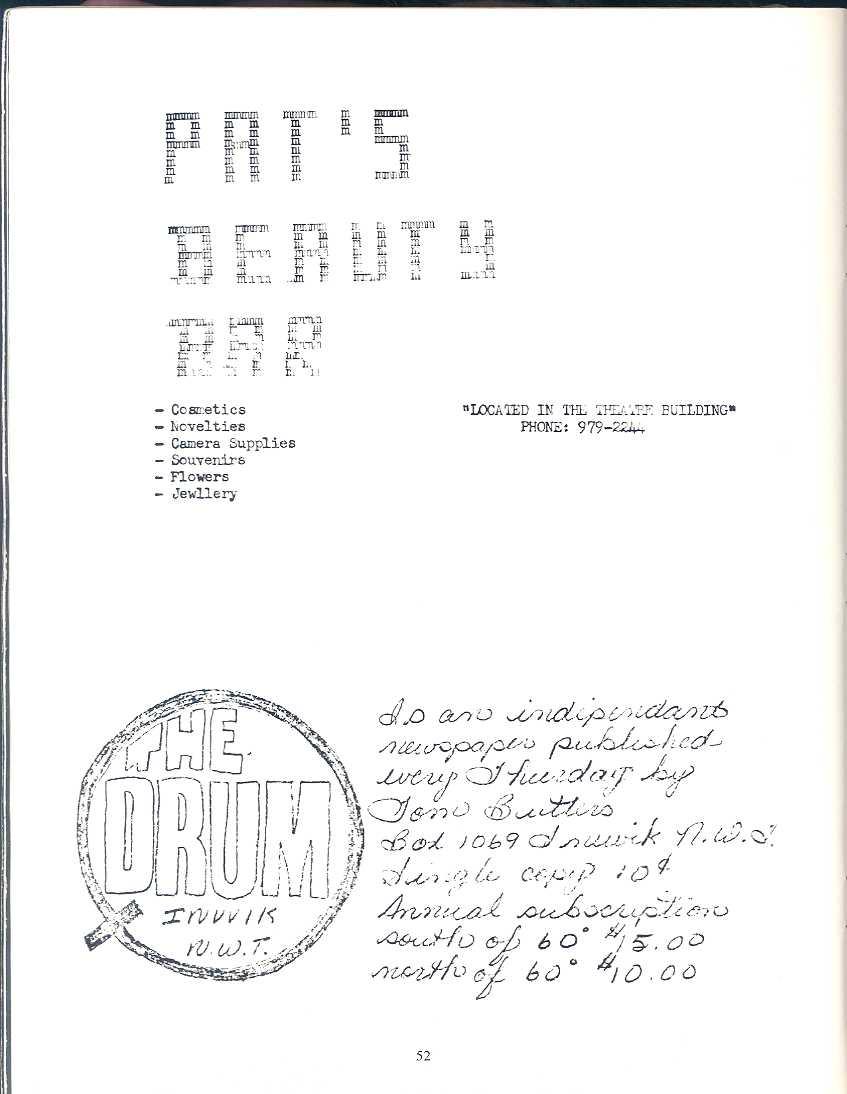 PAT'S
BEAUTY
BAR
- Cosmetics
- Novelties
- Camera Supplies
- Souvenirs
- Flowers
- Jewllery
"LOCATED IN THE THEATRE BUILDING"
PHONE: 979-2244
THE
DRUM
INUVIK
N.W.T.
Is an indipendant
newspaper published
every Thursday by
Tom Butters
Box 1069 Inuvik N.W.T.
Single copy 10¢
Annual subscription
south of 60° $15.00
north of 60° $10.00
52